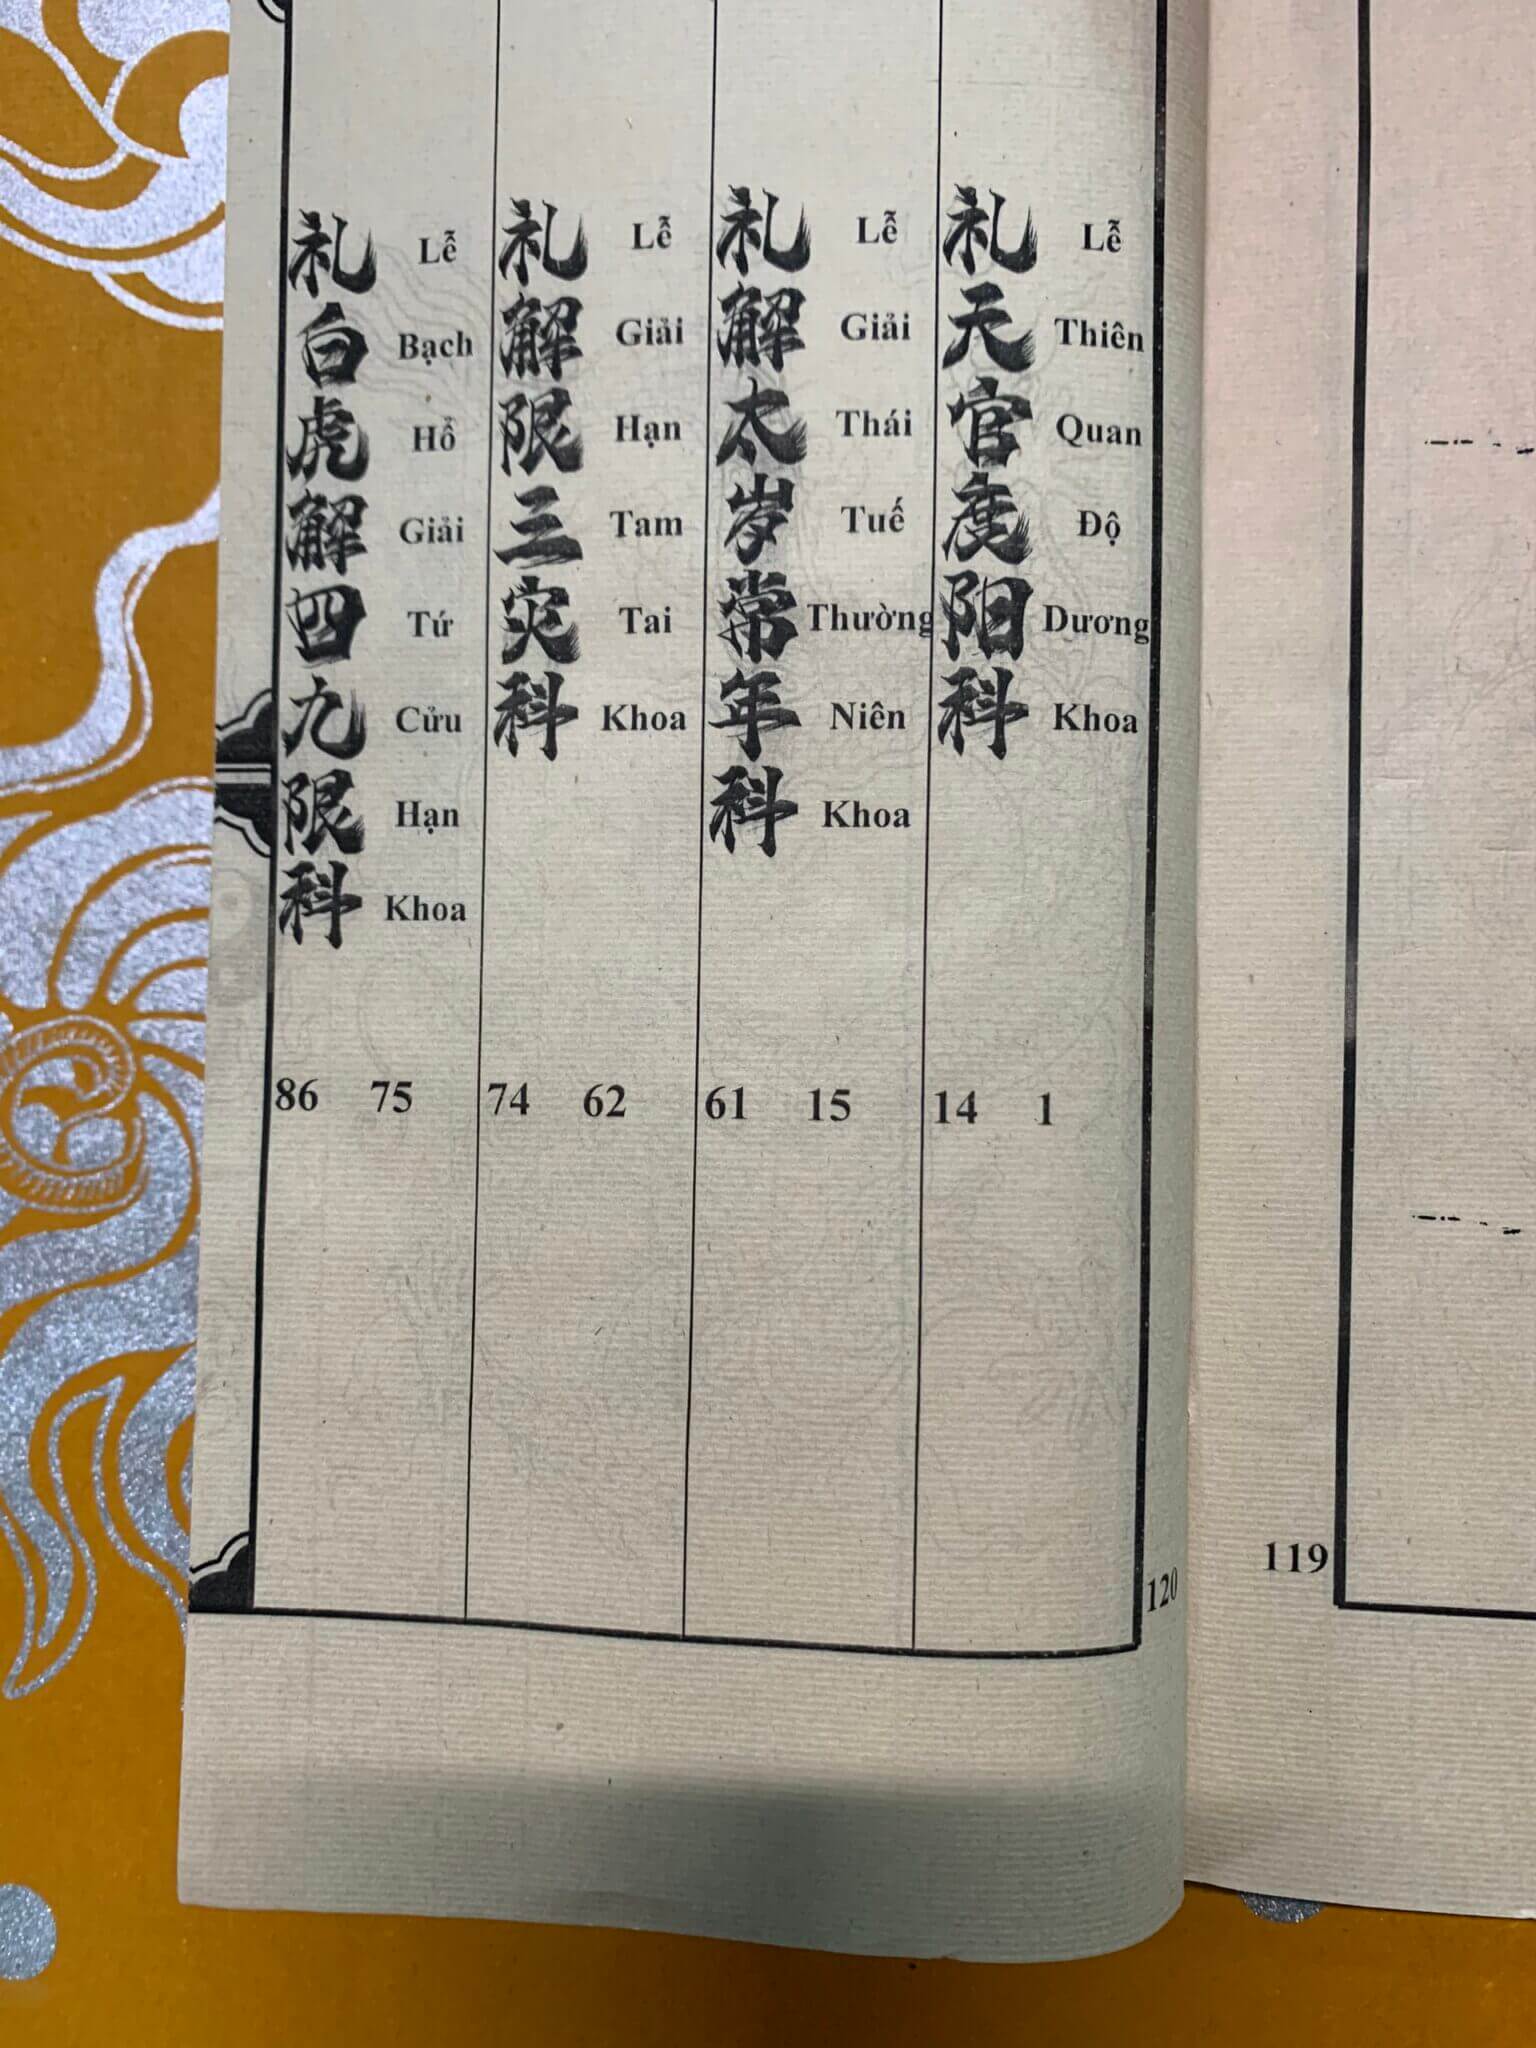 礼天官度阳科
Lễ Thiên Quan Độ Dương Khoa
14 1
礼解太岁常年科
Lễ Giải Thái Tuế Thường Niên Khoa
61 15
礼解限三灾科
Lễ Giải Hạn Tam Tai Khoa
74 62
礼白虎解四九限科
Lễ Bạch Hổ Giải Tứ Cửu Hạn Khoa
86 75
120
119